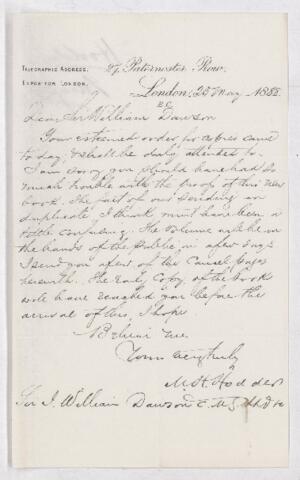 TELEGRAPHIC ADDRESS.
EXPOSITOR LONDON.
27, Paternoster Row,
London, 25 May 1888
E.C.
Dear Sir William Dawson
Your esteemed order for copies came
to day, & shall be duly attended to.
I am sorry you should have had so
much trouble with the proofs of this new
book. The fact of our sending in
duplicate I think must have been a
little confusing. The volume will be in
the hands of the public in a few days
I send you a few of the cancel pages
herewith. The early copy of the book
will have reached you before the
arrival of this, I hope.
Believe me
Yours very truly
M. H. Hodder
Sir J. William Dawson C.M.G.